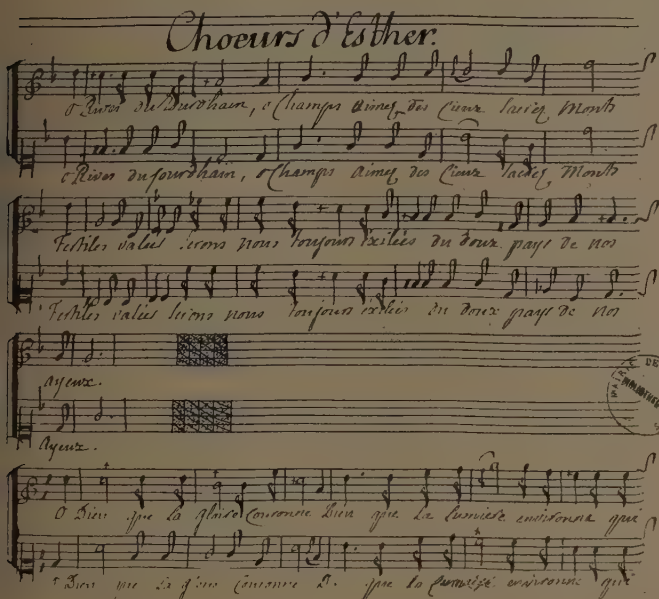 Choeurs d'Esther.
o Rives du Jourdhain, o Champs aimez des Cieux sacrez Monts
o Rives du Jourdhain, o Champs aimez des Cieux sacrez Monts
fertiles valees serons nous toujours exilées du doux pays de nos
fertiles valees serons nous toujours exilées du doux pays de nos
ayeux.
Ayeux.
O Dieu que la gloire Couronne Dieu que la lumiere environne qui
o Dieu que la gloire couronne D. que la lumiere environne qui